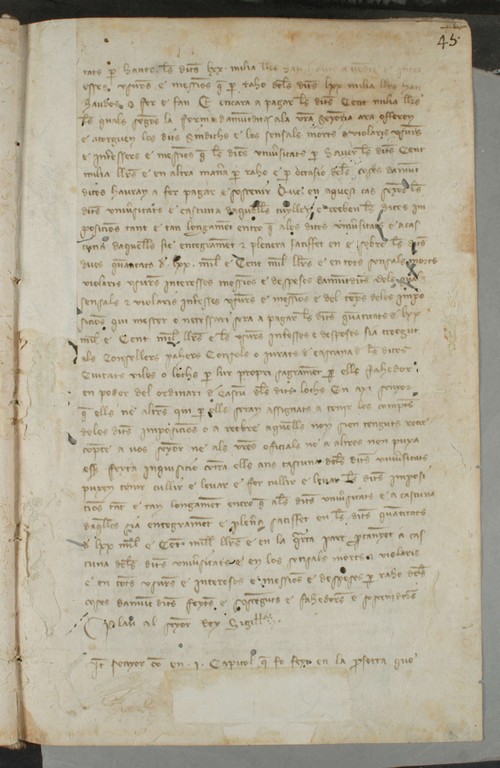 45
tats per haver les dits lxx milia llrs
esses usures e messios q per raho dels dits lxx milia llrs
haurets a fer e fan E encara a pagar les dits Cent milia llrs
les quals segons la forma damuntdita ala vra senyoria ara offeren
e atorguen los dits sindichs e los sensals morts e violaris usures
e interesses e messions q les dites universitats per haver les dits Cent
milia llrs e en altra mana per raho e per occasio dels coses damunt
dites hauran a fer pagar e sostenir Que en aquest cas senyor les
dits universitats e cascuna daquelles cullen e reeben les dites im
posicions tant e tan longament entro q ales dites universitats e a cas
cuna daquelles sie entegrament e plenera satisfet en e sobre les dits
dues quantitats d lxx mil e Cent mil llrs e en tots sensals morts
violaris usures interesses messions e despeses damuntdits dels quals
sensals e violaris interesses usures e messions e del temps deles impo
sicions qui mester e necessari sera a pagar les dits quantitats d lxx
mil e Cent mil llrs e les usures interesses e despeses sia cregut
als Consellers pahers Consols o jurats d cascuna d les dites
Ciutats viles o lochs per lur propri sagrament per ells fahedor
en poder del ordinari d Cascu dels dits lochs En axi senyor
q ells ne altres qui per ells seran assignats a tenir los comptes
deles dits imposicions o a reebre aquelles non sien tenguts retre
compte a vos senyor ne als vres oficials ne a altres non puxa
esser feyta inquisicio contra ells ans cascuna dels dits universitats
puxen tenir cullir e levar e fer cullir e levar les dits imposi
cions tant e tan longament entro q ales dits universitats e a cascuna
daqlles sia entegrament e plenera satisfet en les dits quantitats
d lxx mil e Cent mill llrs e en la qrta part pertanyet a cas
cuna dels dits universitats e en los sensals morts e violaris
e en tots usures e interesses e messions e despeses per raho dels
coses damunt dites feytes e sostengues e fahedores e sostenidores
Plau al senyor Rey Sigillet
Itm senyor com en .i. Capitol q fo feyt en la proferta que